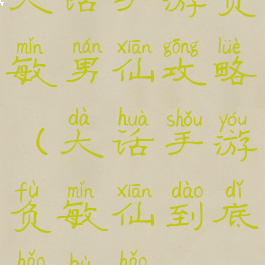 大话手游负
mǐn nán xiān gōng lüè
敏男仙攻略
dà huà shǒu yóu
（大话手游
fù mǐn xiān dào dǐ
负敏仙到底
hǎo bù hǎo